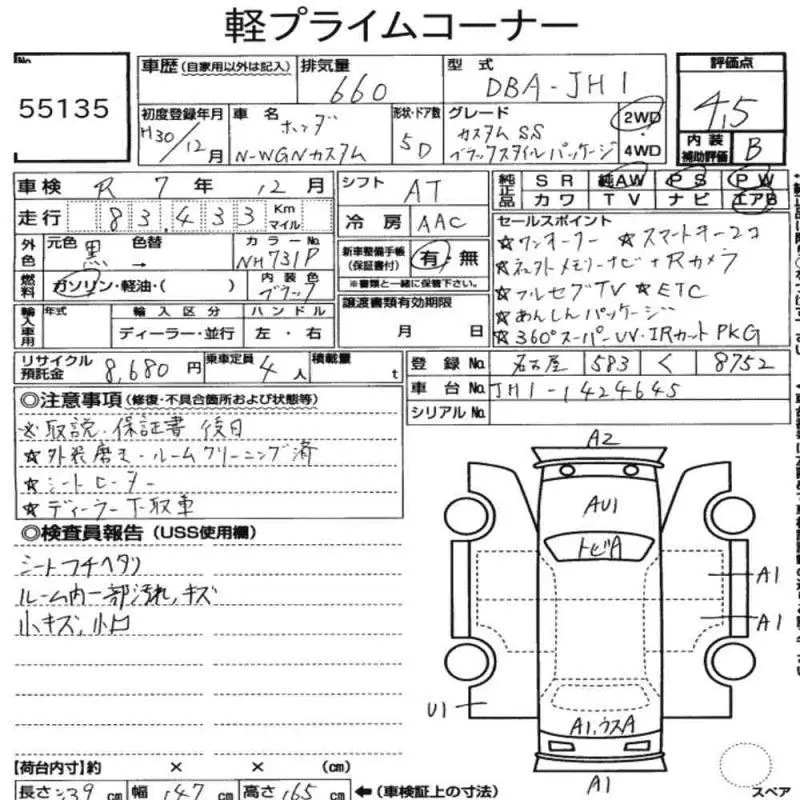 軽プライムコーナー
No.
55135
車歴 (自家用以外は記入)
排気量
660
型式
DBA-JH1
評価点
4.5
内装
補助評価
B
初度登録年月
H30/12月
車名
ホンダ
N-WGNカスタム
形状・ドア数
5D
グレード
カスタムSS
ブラックスタイルパッケージ
2WD
4WD
車検 R 7 年 12 月
シフト AT
純正品
SR 純AW PS PW
カワ TV ナビ エアB
走行 83,433 Km マイル
冷房 AAC
外色
元色 黒 色替 →
カラーNo. NH731P
新車整備手帳
(保証書付)
有・無
※書類と一緒に保管下さい。
燃料
ガソリン・軽油・( )
内装色 ブラック
譲渡書類有効期限
月 日
セールスポイント
☆ワンオーナー ☆スマートキー2コ
☆ネットメモリーナビ+Rカメラ
☆フルセグTV ☆ETC
☆あんしんパッケージ
☆360°スーパーUV・IRカットPKG
輸入車用
年式
輸入区分
ディーラー・並行
ハンドル
左・右
リサイクル
預託金
8,680 円
乗車定員 4 人
積載量 t
登録No. 名古屋 583 く 8752
車台No. JH1-1424645
シリアルNo.
◎注意事項 (修復・不具合箇所および状態等)
※取説・保証書 後日
☆外装磨き・ルームクリーニング済
☆シートヒーター
☆ディーラー下取車
◎検査員報告 (USS使用欄)
シートフチヘタリ
ルーム内一部汚れ,キズ
小キズ,小凹
A2
AU1
トビA
A1
A1
U1
A1,ウスA
A1
スペア
【荷台内寸】約 × × (cm)
長さ 339 cm 幅 147 cm 高さ 165 cm
←(車検証上の寸法)